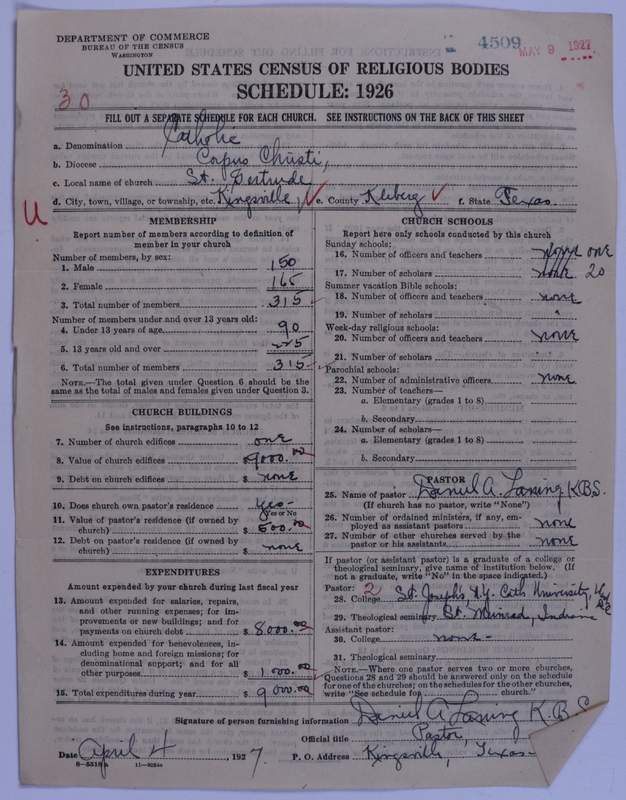 DEPARTMENT OF COMMERCE
BUREAU OF THE CENSUS
WASHINGTON
4509
MAY 9 1927
UNITED STATES CENSUS OF RELIGIOUS BODIES
SCHEDULE: 1926
30
FILL OUT A SEPARATE SCHEDULE FOR EACH CHURCH. SEE INSTRUCTIONS ON THE BACK OF THIS SHEET
a. Denomination Catholic
b. Diocese Corpus Christi,
c. Local name of church St. Gertrude
d. City, town, village, or township, etc. Kingsville, e. County Kleberg f. State Texas.
U
MEMBERSHIP
Report number of members according to definition of
member in your church
Number of members, by sex:
1. Male 150
2. Female 165
3. Total number of members 315
Number of members under and over 13 years old:
4. Under 13 years of age 90
5. 13 years old and over 225
6. Total number of members 315
NOTE.—The total given under Question 6 should be
the same as the total of males and females given under Question 3.
CHURCH BUILDINGS
See instructions, paragraphs 10 to 12
7. Number of church edifices one
8. Value of church edifices $9000.00
9. Debt on church edifices $ none
10. Does church own pastor's residence yes-
Yes or No
11. Value of pastor's residence (if owned by
church) $ 500.00
12. Debt on pastor's residence (if owned by
church) $ none
EXPENDITURES
Amount expended by your church during last fiscal year
13. Amount expended for salaries, repairs,
and other running expenses; for im-
provements or new buildings; and for
payments on church debt $ 8000.00
14. Amount expended for benevolences, in-
cluding home and foreign missions; for
denominational support; and for all
other purposes $ 1000.00
15. Total expenditures during year $ 9000.00
CHURCH SCHOOLS
Report here only schools conducted by this church
Sunday schools:
16. Number of officers and teachers one
17. Number of scholars none 20
Summer vacation Bible schools:
18. Number of officers and teachers none
19. Number of scholars "
Week-day religious schools:
20. Number of officers and teachers none
21. Number of scholars "
Parochial schools:
22. Number of administrative officers none
23. Number of teachers—
a. Elementary (grades 1 to 8)
b. Secondary
24. Number of scholars—
a. Elementary (grades 1 to 8)
b. Secondary
PASTOR
25. Name of pastor Daniel A. Laning K.B.S.
(If church has no pastor, write "None")
26. Number of ordained ministers, if any, em-
ployed as assistant pastors none
27. Number of other churches served by the
pastor or his assistants none
If pastor (or assistant pastor) is a graduate of a college or
theological seminary, give name of institution below. (If
not a graduate, write "No" in the space indicated.)
Pastor: 2
28. College St. Josephs N.Y. Cath University,
29. Theological seminary St. Meinrad, Indiana
Assistant pastor:
30. College none-
31. Theological seminary
NOTE.—Where one pastor serves two or more churches,
Questions 28 and 29 should be answered only on the schedule
for one of the churches; on the schedules for the other churches,
write "See schedule for church."
Signature of person furnishing information Daniel A Laning K.B.S
Official title Pastor,
Date April 4, 1927. P. O. Address Kingsville, Texas-
8—5518 a 11—90544